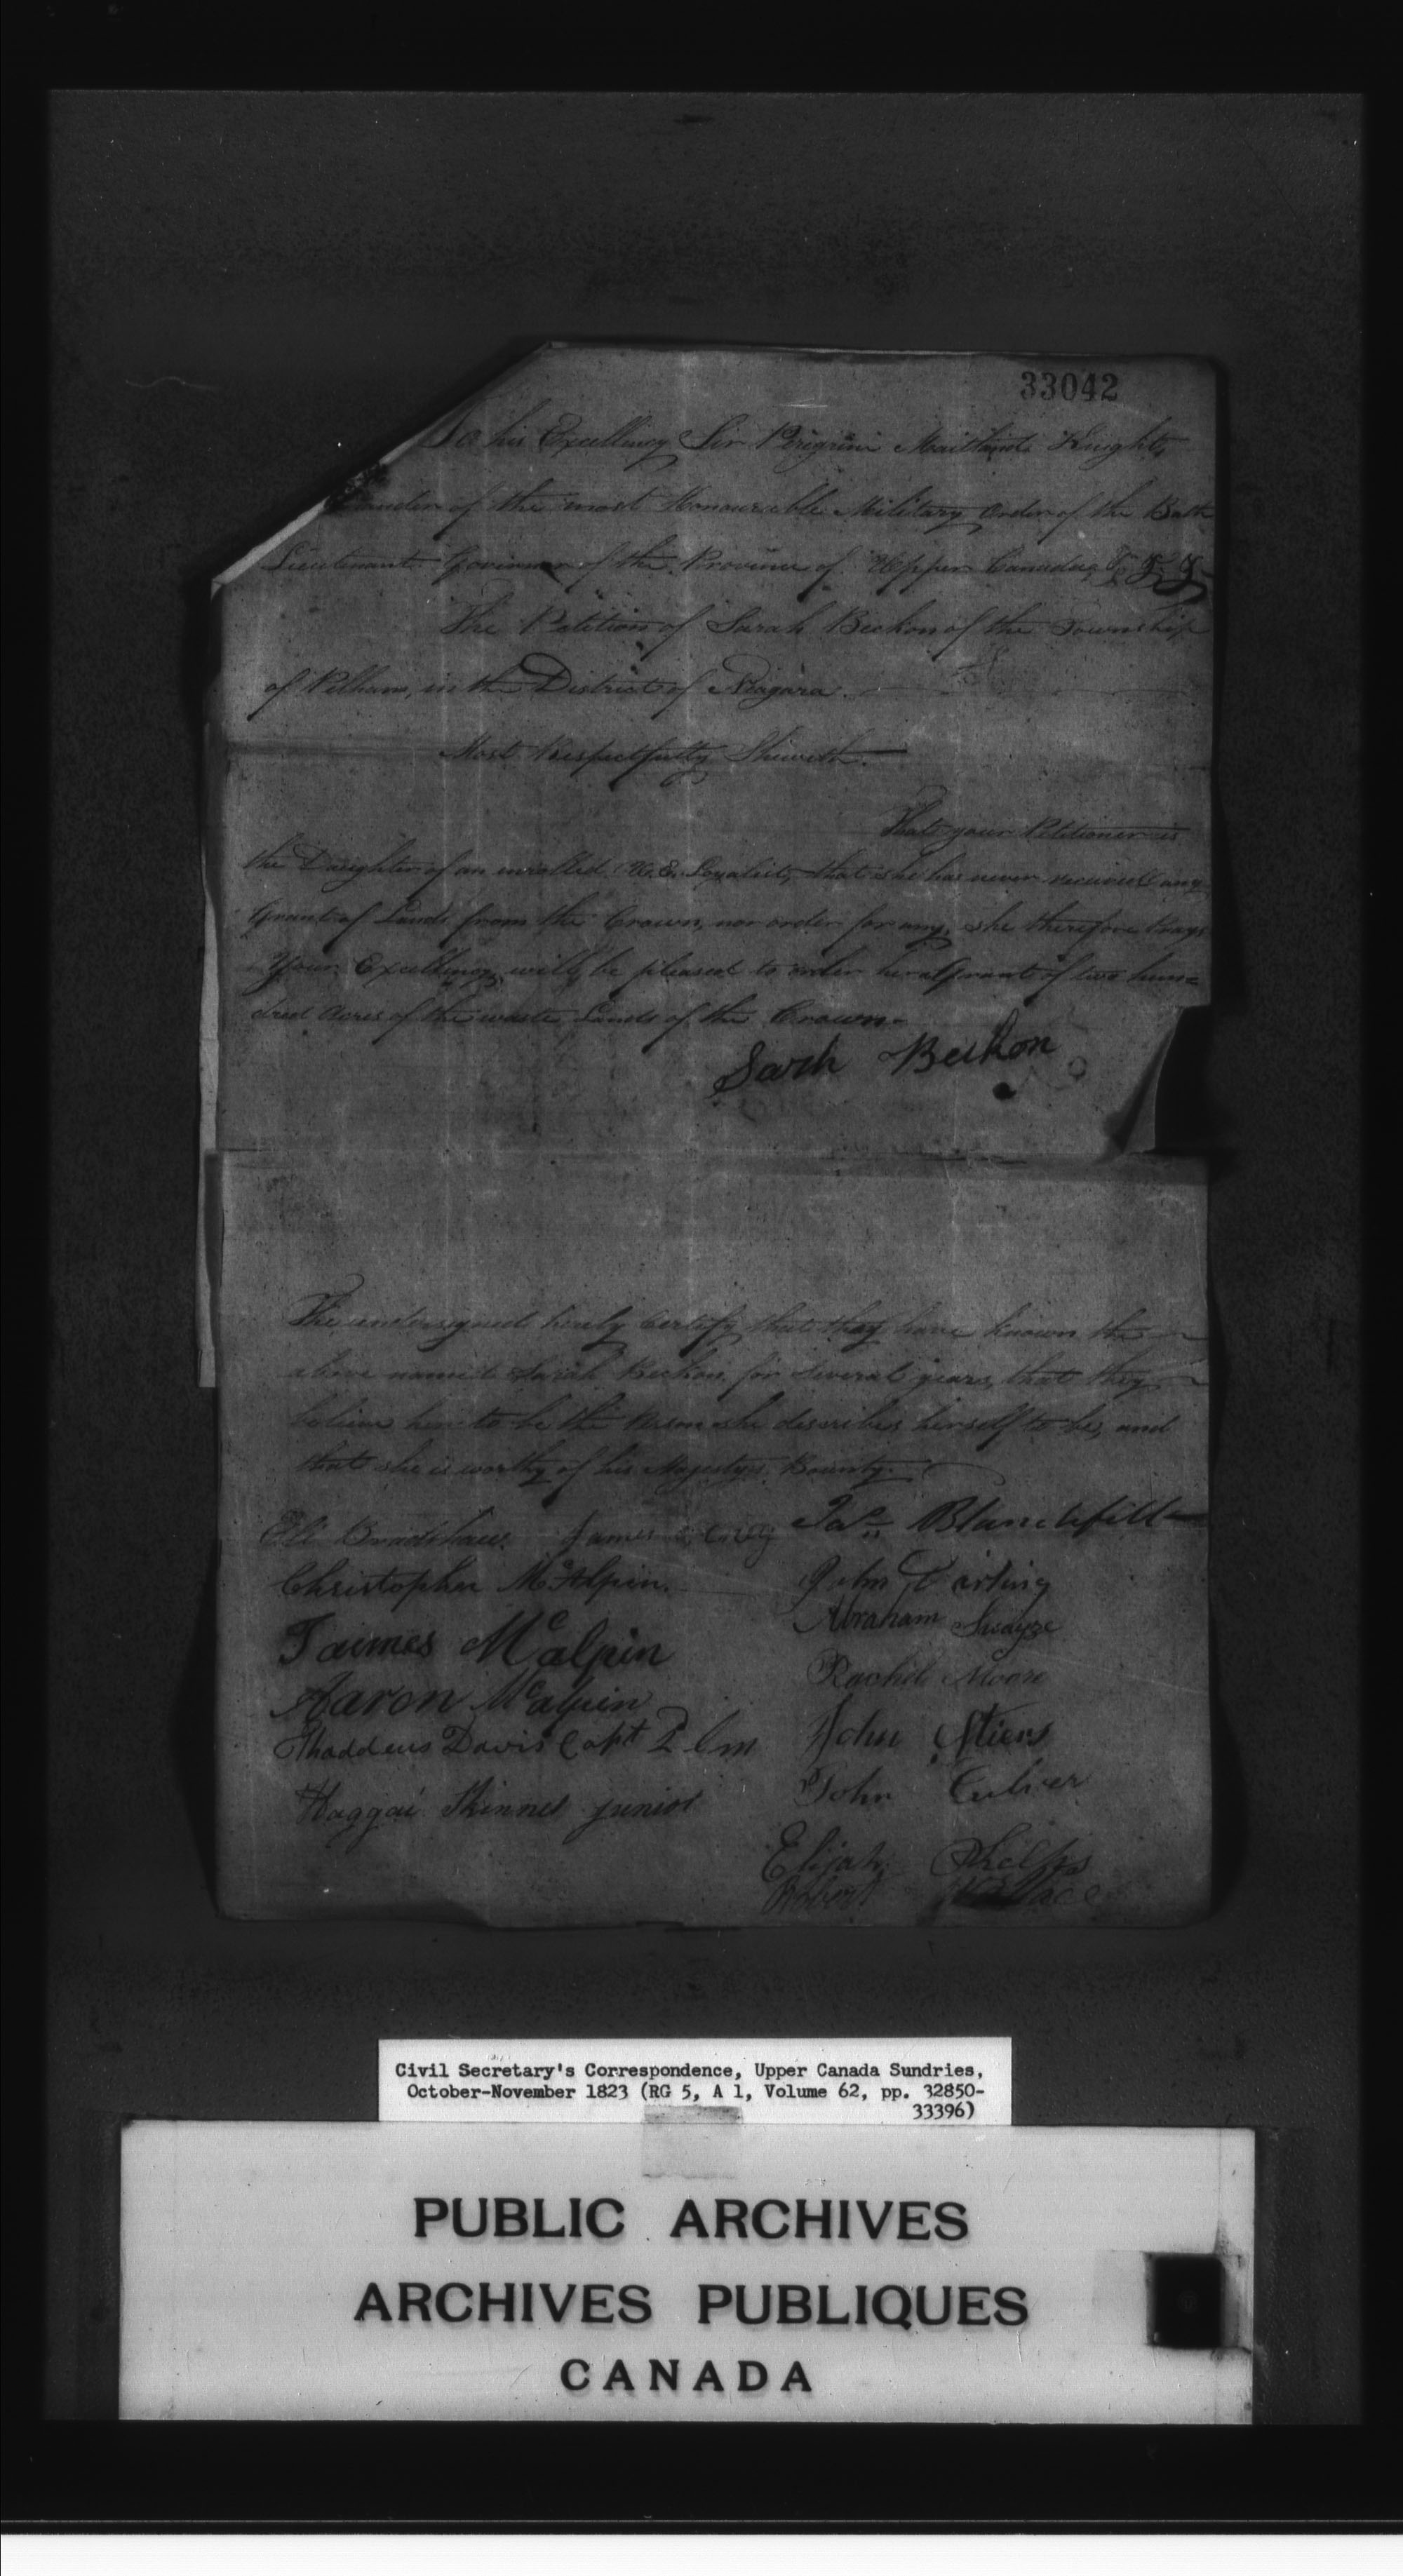 33042
To his Excellency Sir Peregrine Maitland Knight,
of the most Honourable Military Order of the Bath
Lieutenant Governor of the Province of Upper Canada, &c &c &c
The Petition of Sarah Beckon of the Township
of Pelham, in the District of Niagara.
Most Respectfully Sheweth.
That your Petitioner is
the Daughter of an enrolled U.E. Loyalist, that she has never received any
Grant of Lands from the Crown, nor order for any, she therefore Prays
Your Excellency will be pleased to order her a Grant of two hun=
dred Acres of the waste Lands of the Crown.
Sarh Beckon
The undersigned hereby Certify that they have known the
above named Sarah Beckon for several years, that they
believe her to be the Person she describes herself to be, and
that she is worthy of his Majestys Bounty.
Eli Bradshaw. James Jas Blanchfill
Christopher McAlpin. John Darling
Jaimes Mcalpin Abraham Swayze
Aaron Mcalpin Rachel Moore
Thaddeus Davis Capt 2 John Stiers
Haggai Skinner junior John Culver
Elijah Phelps
Robert Wallace
Civil Secretary's Correspondence, Upper Canada Sundries,
October-November 1823 (RG 5, A 1, Volume 62, pp. 32850-
33396)
PUBLIC ARCHIVES
ARCHIVES PUBLIQUES
CANADA